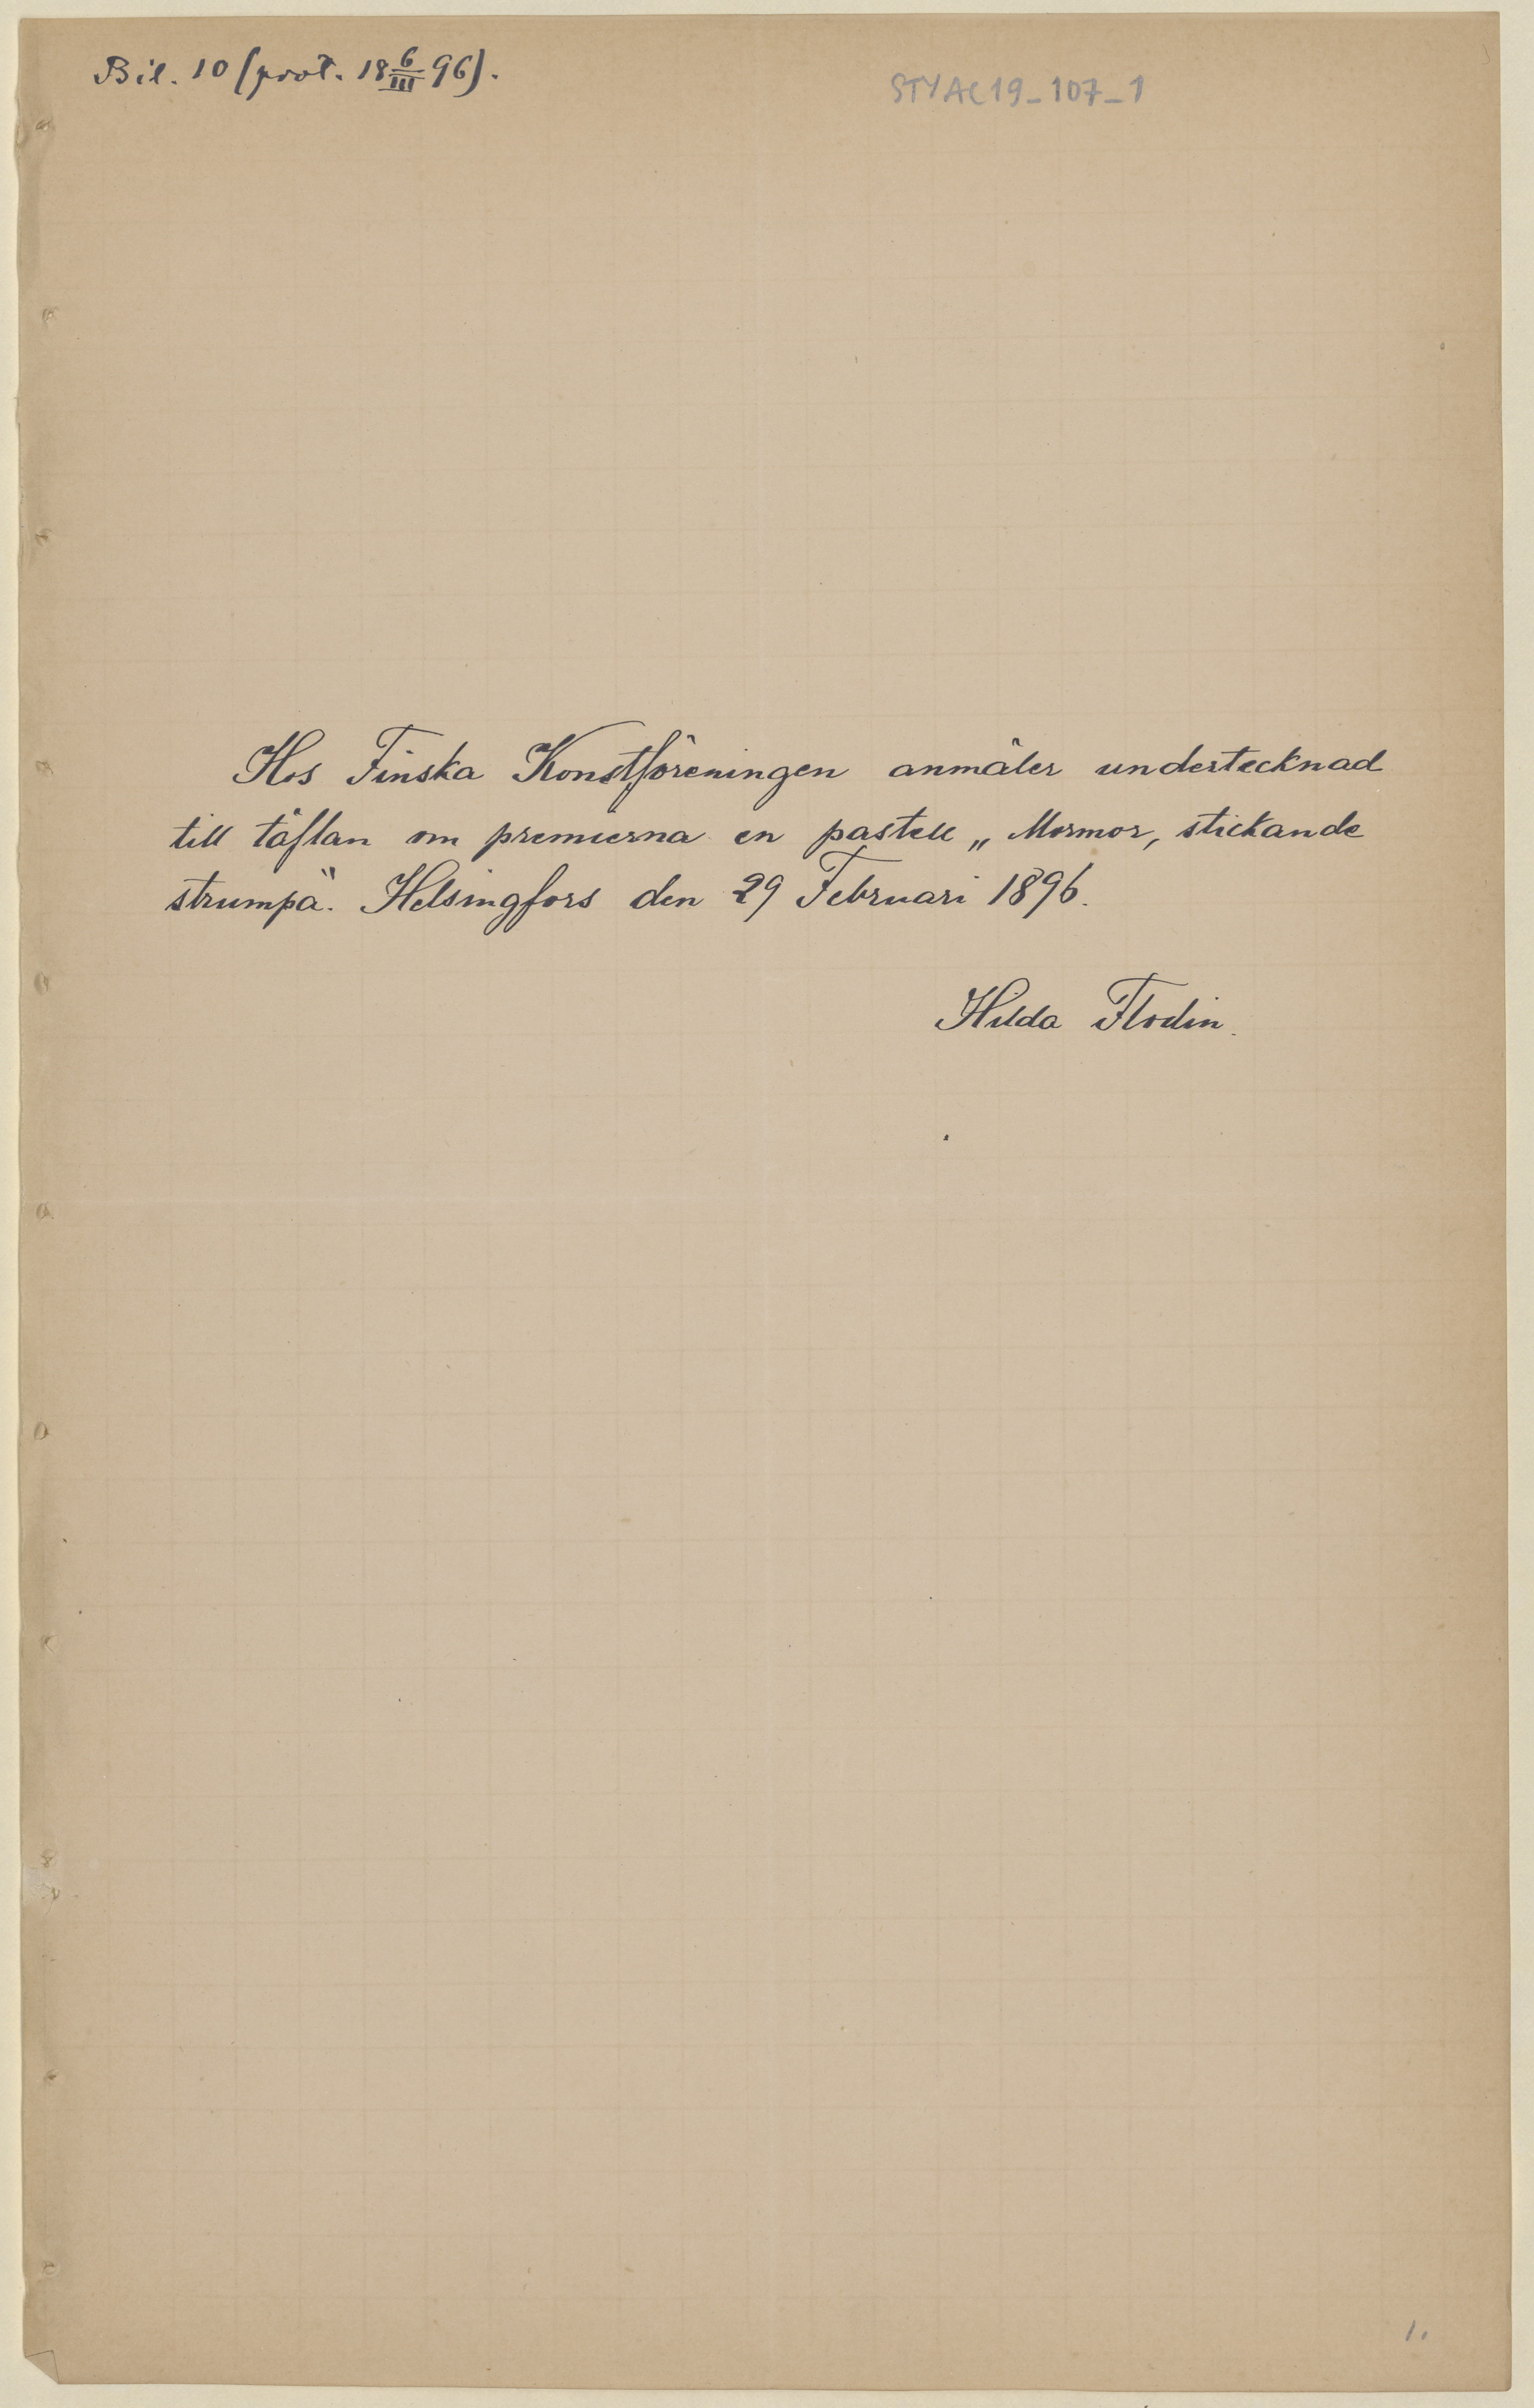 Bil. 10 (prot. 18 6/III 96).
STYAC19_107_1
Hos Finska Konstföreningen anmäler undertecknad
till täflan om premierna en pastell „Mormor, stickande
strumpa“. Helsingfors den 29 Februari 1896.
Hilda Flodin.
1.